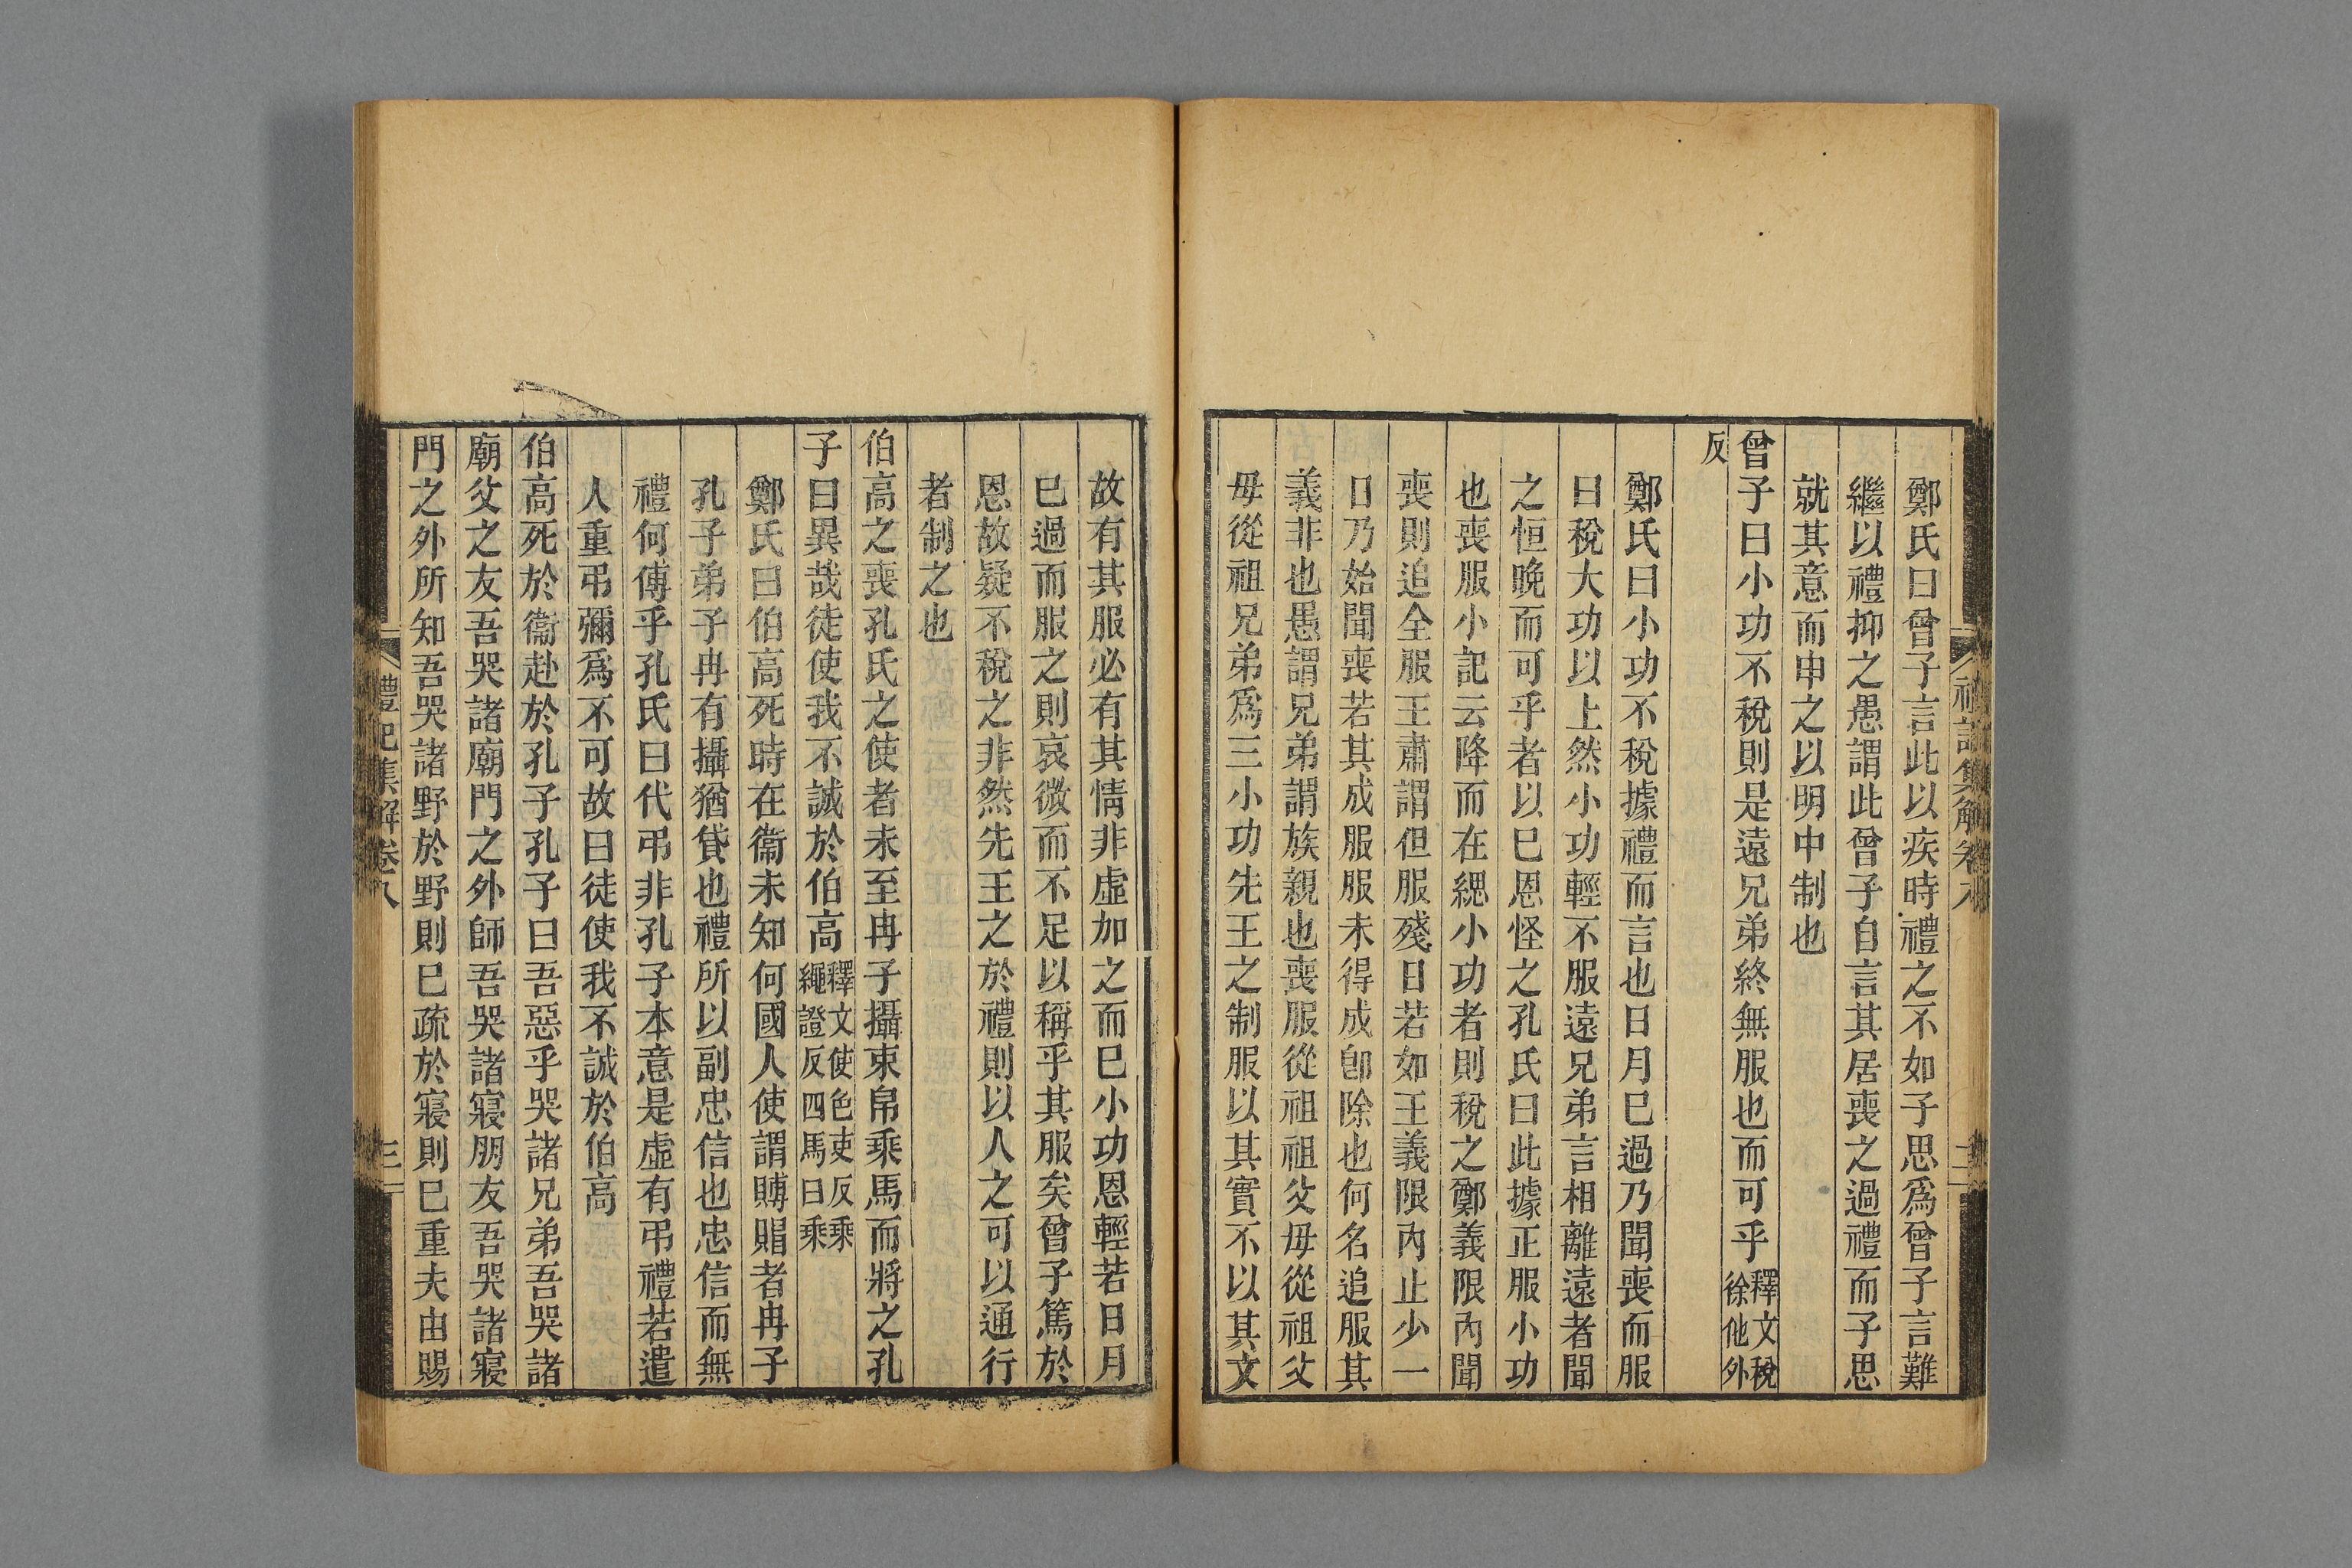 鄭氏曰曾子言此以疾時禮之不如子思爲曾子言難
繼以禮抑之愚謂此曾子自言其居喪之過禮而子思
就其意而申之以明中制也
曾子曰小功不稅則是遠兄弟終無服也而可乎釋文稅徐他外
反
鄭氏曰小功不稅據禮而言也日月已過乃聞喪而服
曰稅大功以上然小功輕不服遠兄弟言相離遠者聞
之恒晚而可乎者以已恩怪之孔氏曰此據正服小功
也喪服小記云降而在緦小功者則稅之鄭義限內聞
喪則追全服王肅謂但服殘日若如王義限內止少一
日乃始聞喪若其成服服未得成卽除也何名追服其
義非也愚謂兄弟謂族親也喪服從祖祖父母從祖父
母從祖兄弟爲三小功先王之制服以其實不以其文
故有其服必有其情非虛加之而已小功恩輕若日月
已過而服之則哀微而不足以稱乎其服矣曾子篤於
恩故疑不稅之非然先王之於禮則以人之可以通行
者制之也
伯高之喪孔氏之使者未至冉子攝束帛乘馬而將之孔
子曰異哉徒使我不誠於伯高釋文使色吏反乘繩證反四馬曰乘
鄭氏曰伯高死時在衞未知何國人使謂賻賵者冉子
孔子弟子冉有攝猶貸也禮所以副忠信也忠信而無
禮何傳乎孔氏曰代弔非孔子本意是虛有弔禮若遣
人重弔彌爲不可故曰徒使我不誠於伯高
伯高死於衞赴於孔子孔子曰吾惡乎哭諸兄弟吾哭諸
廟父之友吾哭諸廟門之外師吾哭諸寢朋友吾哭諸寢
門之外所知吾哭諸野於野則已疏於寢則已重夫由賜
禮記集解卷八
三